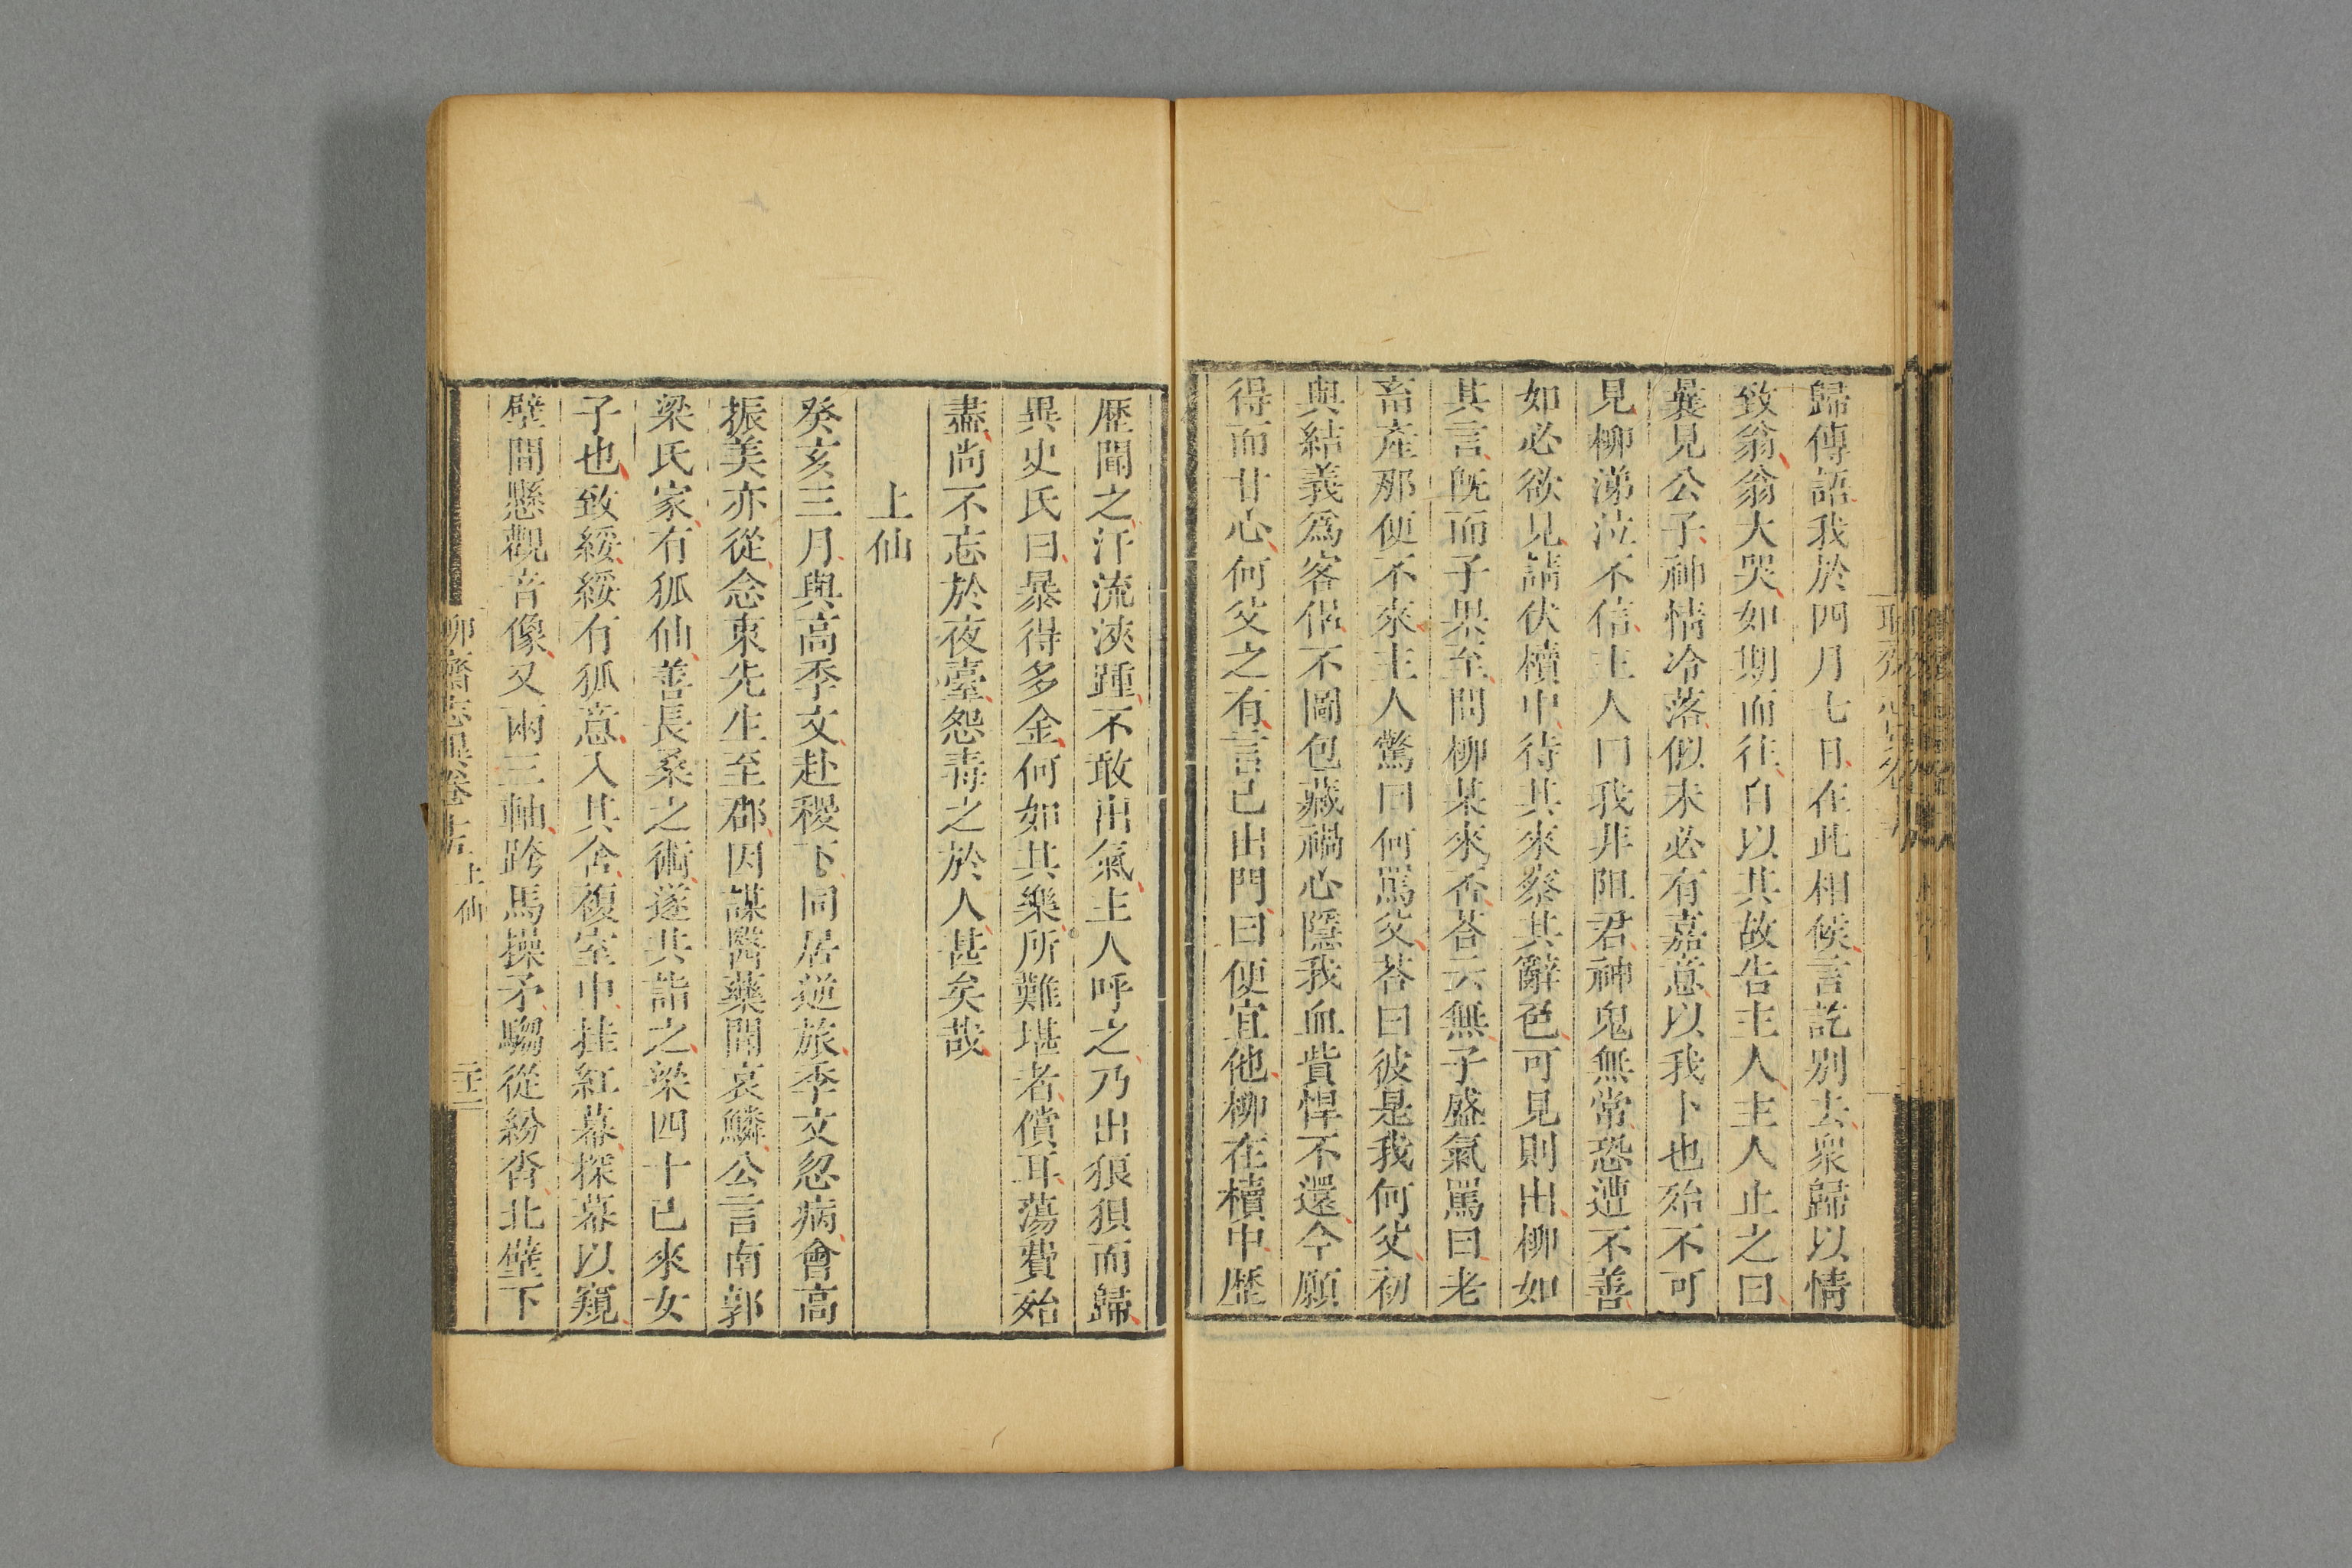 歸傳語我於四月七日在此相候言訖別去衆歸以情
致翁翁大哭如期而往自以其故告主人主人止之曰
曩見公子神情冷落似未必有嘉意以我卜也殆不可
見柳涕泣不信主人曰我非阻君神鬼無常恐遭不善
如必欲見請伏櫝中待其來察其辭色可見則出柳如
其言旣而子果至問柳某來否荅云無子盛氣罵曰老
畜產那便不來主人驚曰何罵父荅曰彼是我何父初
與結義爲客侶不圖包藏禍心隱我血貲悍不還今願
得而甘心何父之有言已出門曰便宜他柳在櫝中歷
歷聞之汗流浹踵不敢出氣主人呼之乃出狼狽而歸
異史氏曰暴得多金何如其樂所難堪者償耳蕩費殆
盡尚不忘於夜臺怨毒之於人甚矣哉
上仙
癸亥三月與高季文赴稷下同居逆旅季文忽病會高
振美亦從念東先生至郡因謀醫藥聞袁鱗公言南郭
梁氏家有狐仙善長桑之術遂共詣之梁四十已來女
子也致綏綏有狐意入其舍複室中挂紅幕探幕以窺
壁間懸觀音像又兩三軸跨馬操矛騶從紛沓北壁下
聊齋志異卷十五 上仙